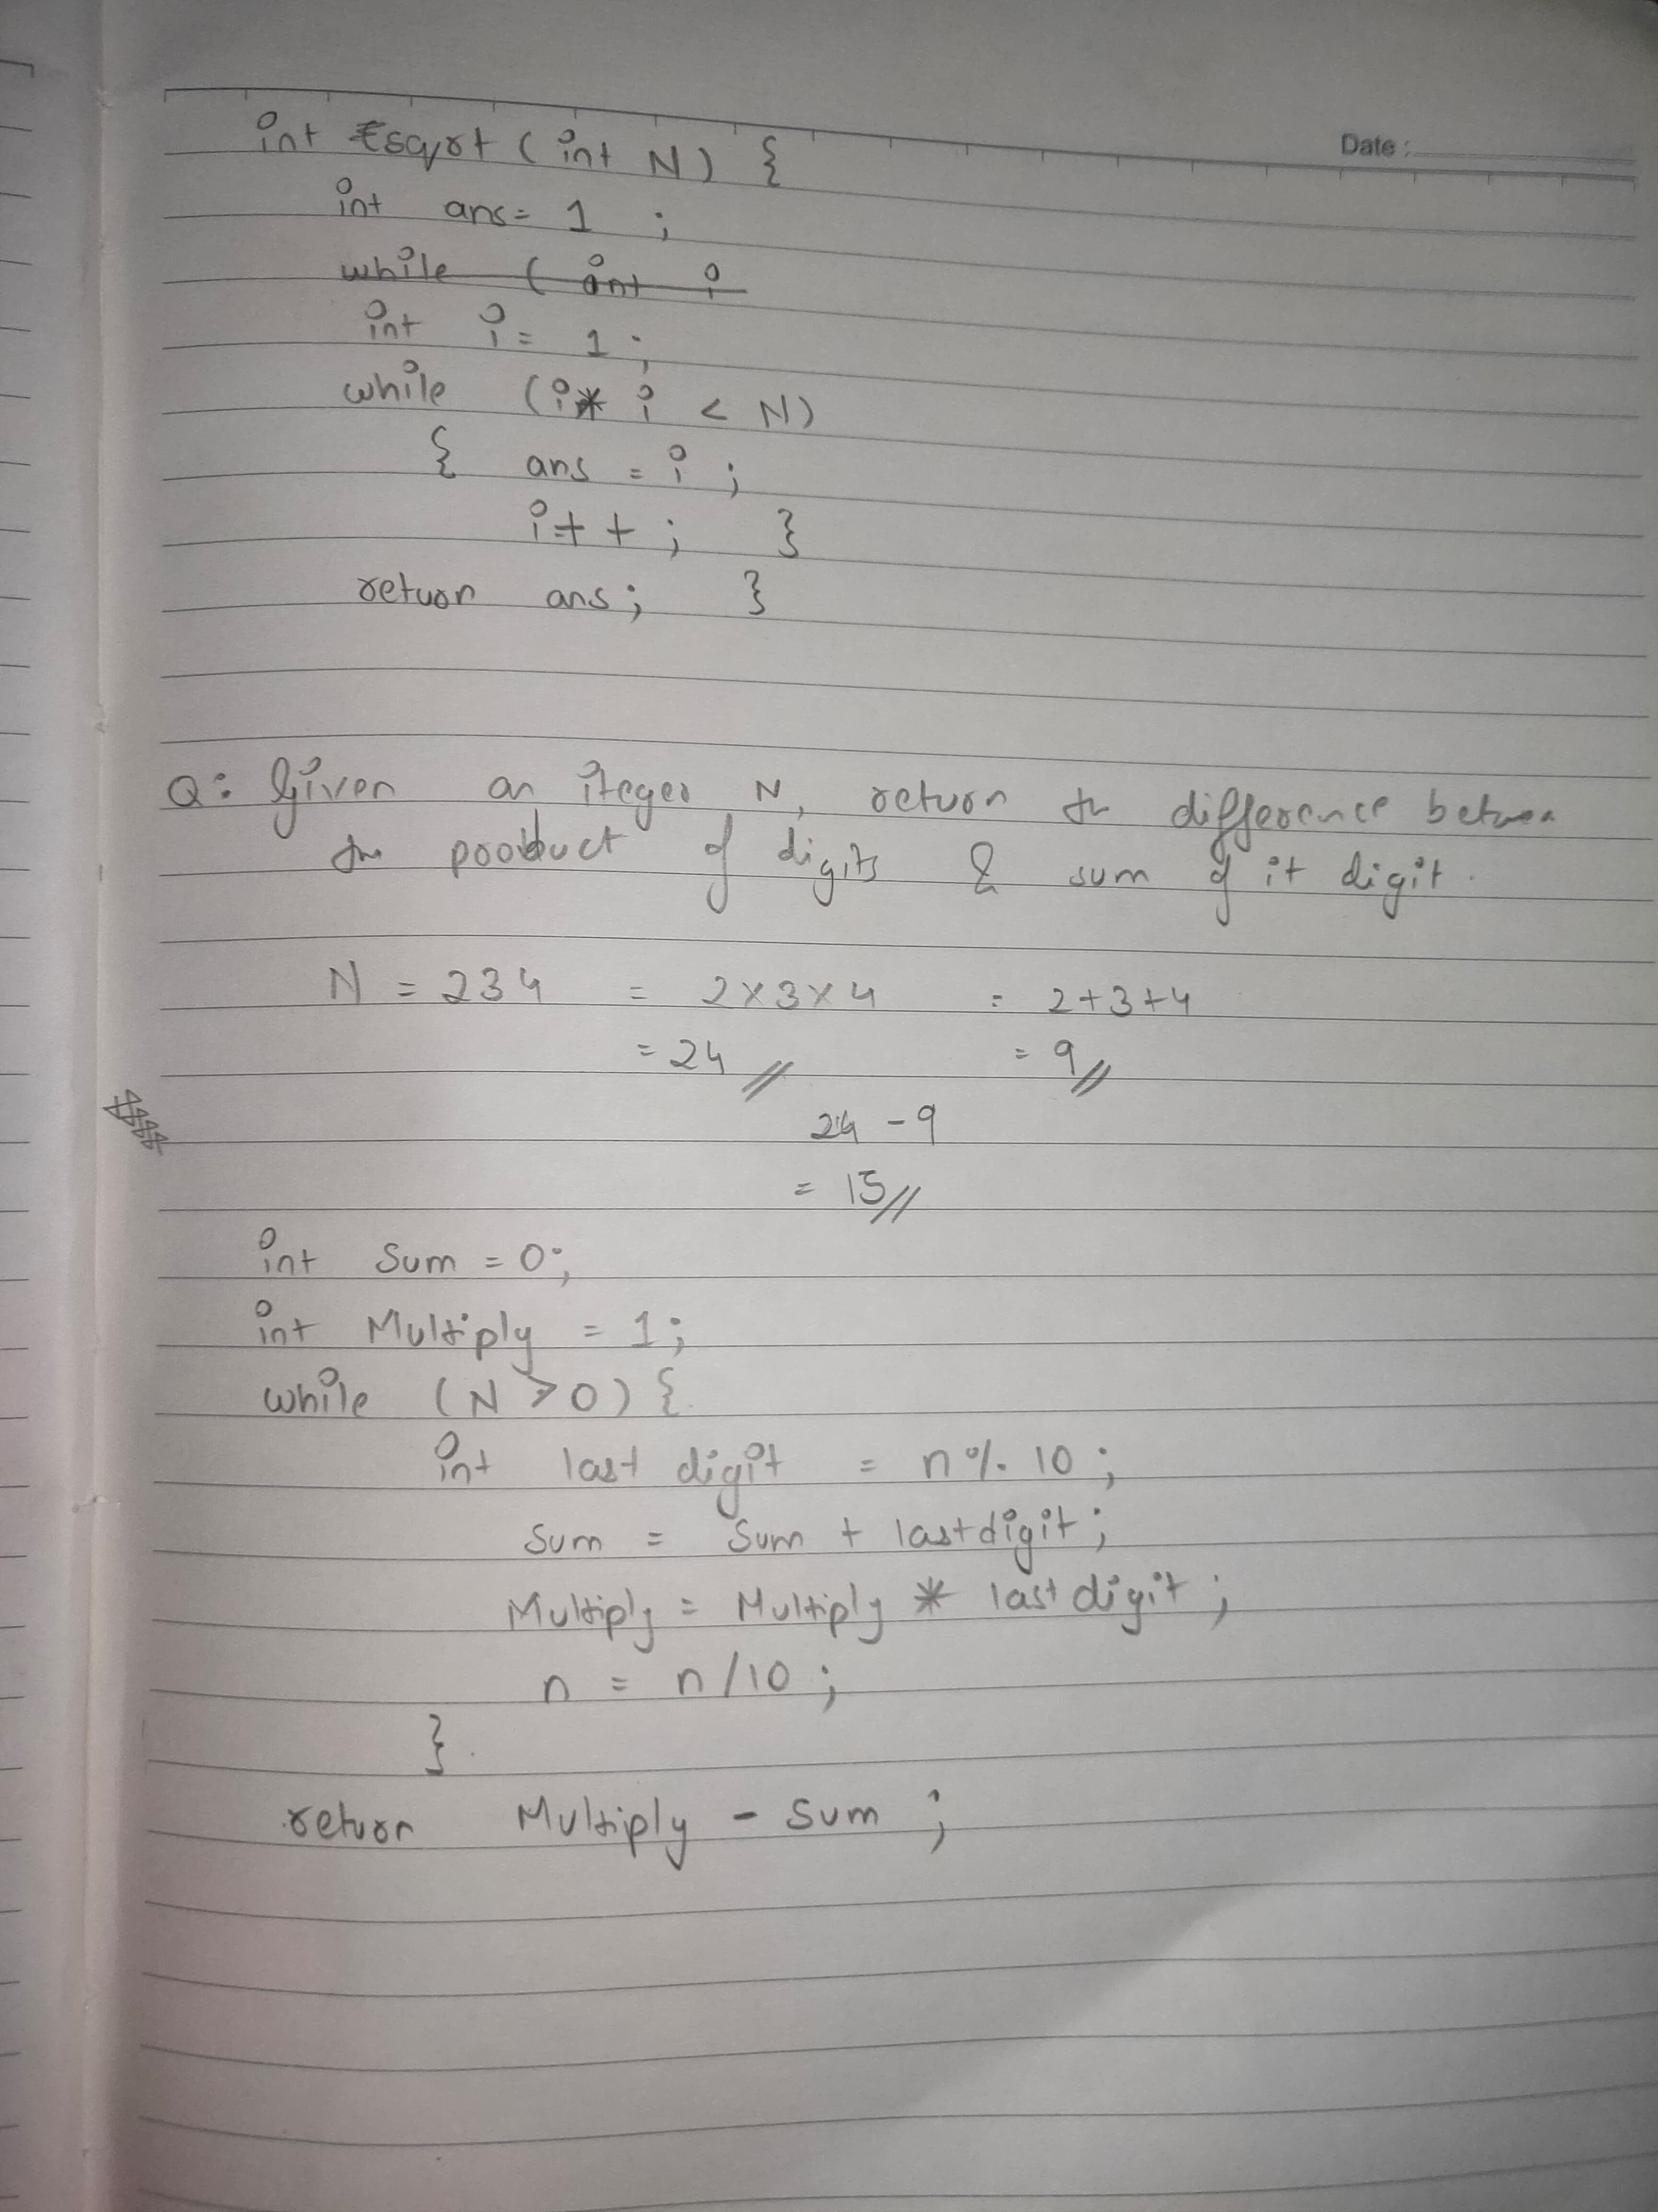 Date :
int sqrt ( int N) {
int ans = 1 ;
while ( int i
int i = 1 ;
while (i * i < N)
{ ans = i ;
i++ ; }
return ans ; }
Q: Given an iteger N, return the difference between
the product of digits & sum of it digit.
N = 234 = 2×3×4 = 2+3+4
= 24 // = 9 //
24 - 9
= 15 //
int Sum = 0 ;
int Multiply = 1 ;
while (N > 0) {
int last digit = n % 10 ;
sum = Sum + lastdigit ;
Multiply = Multiply * last digit ;
n = n/10 ;
}
return Multiply - Sum ;